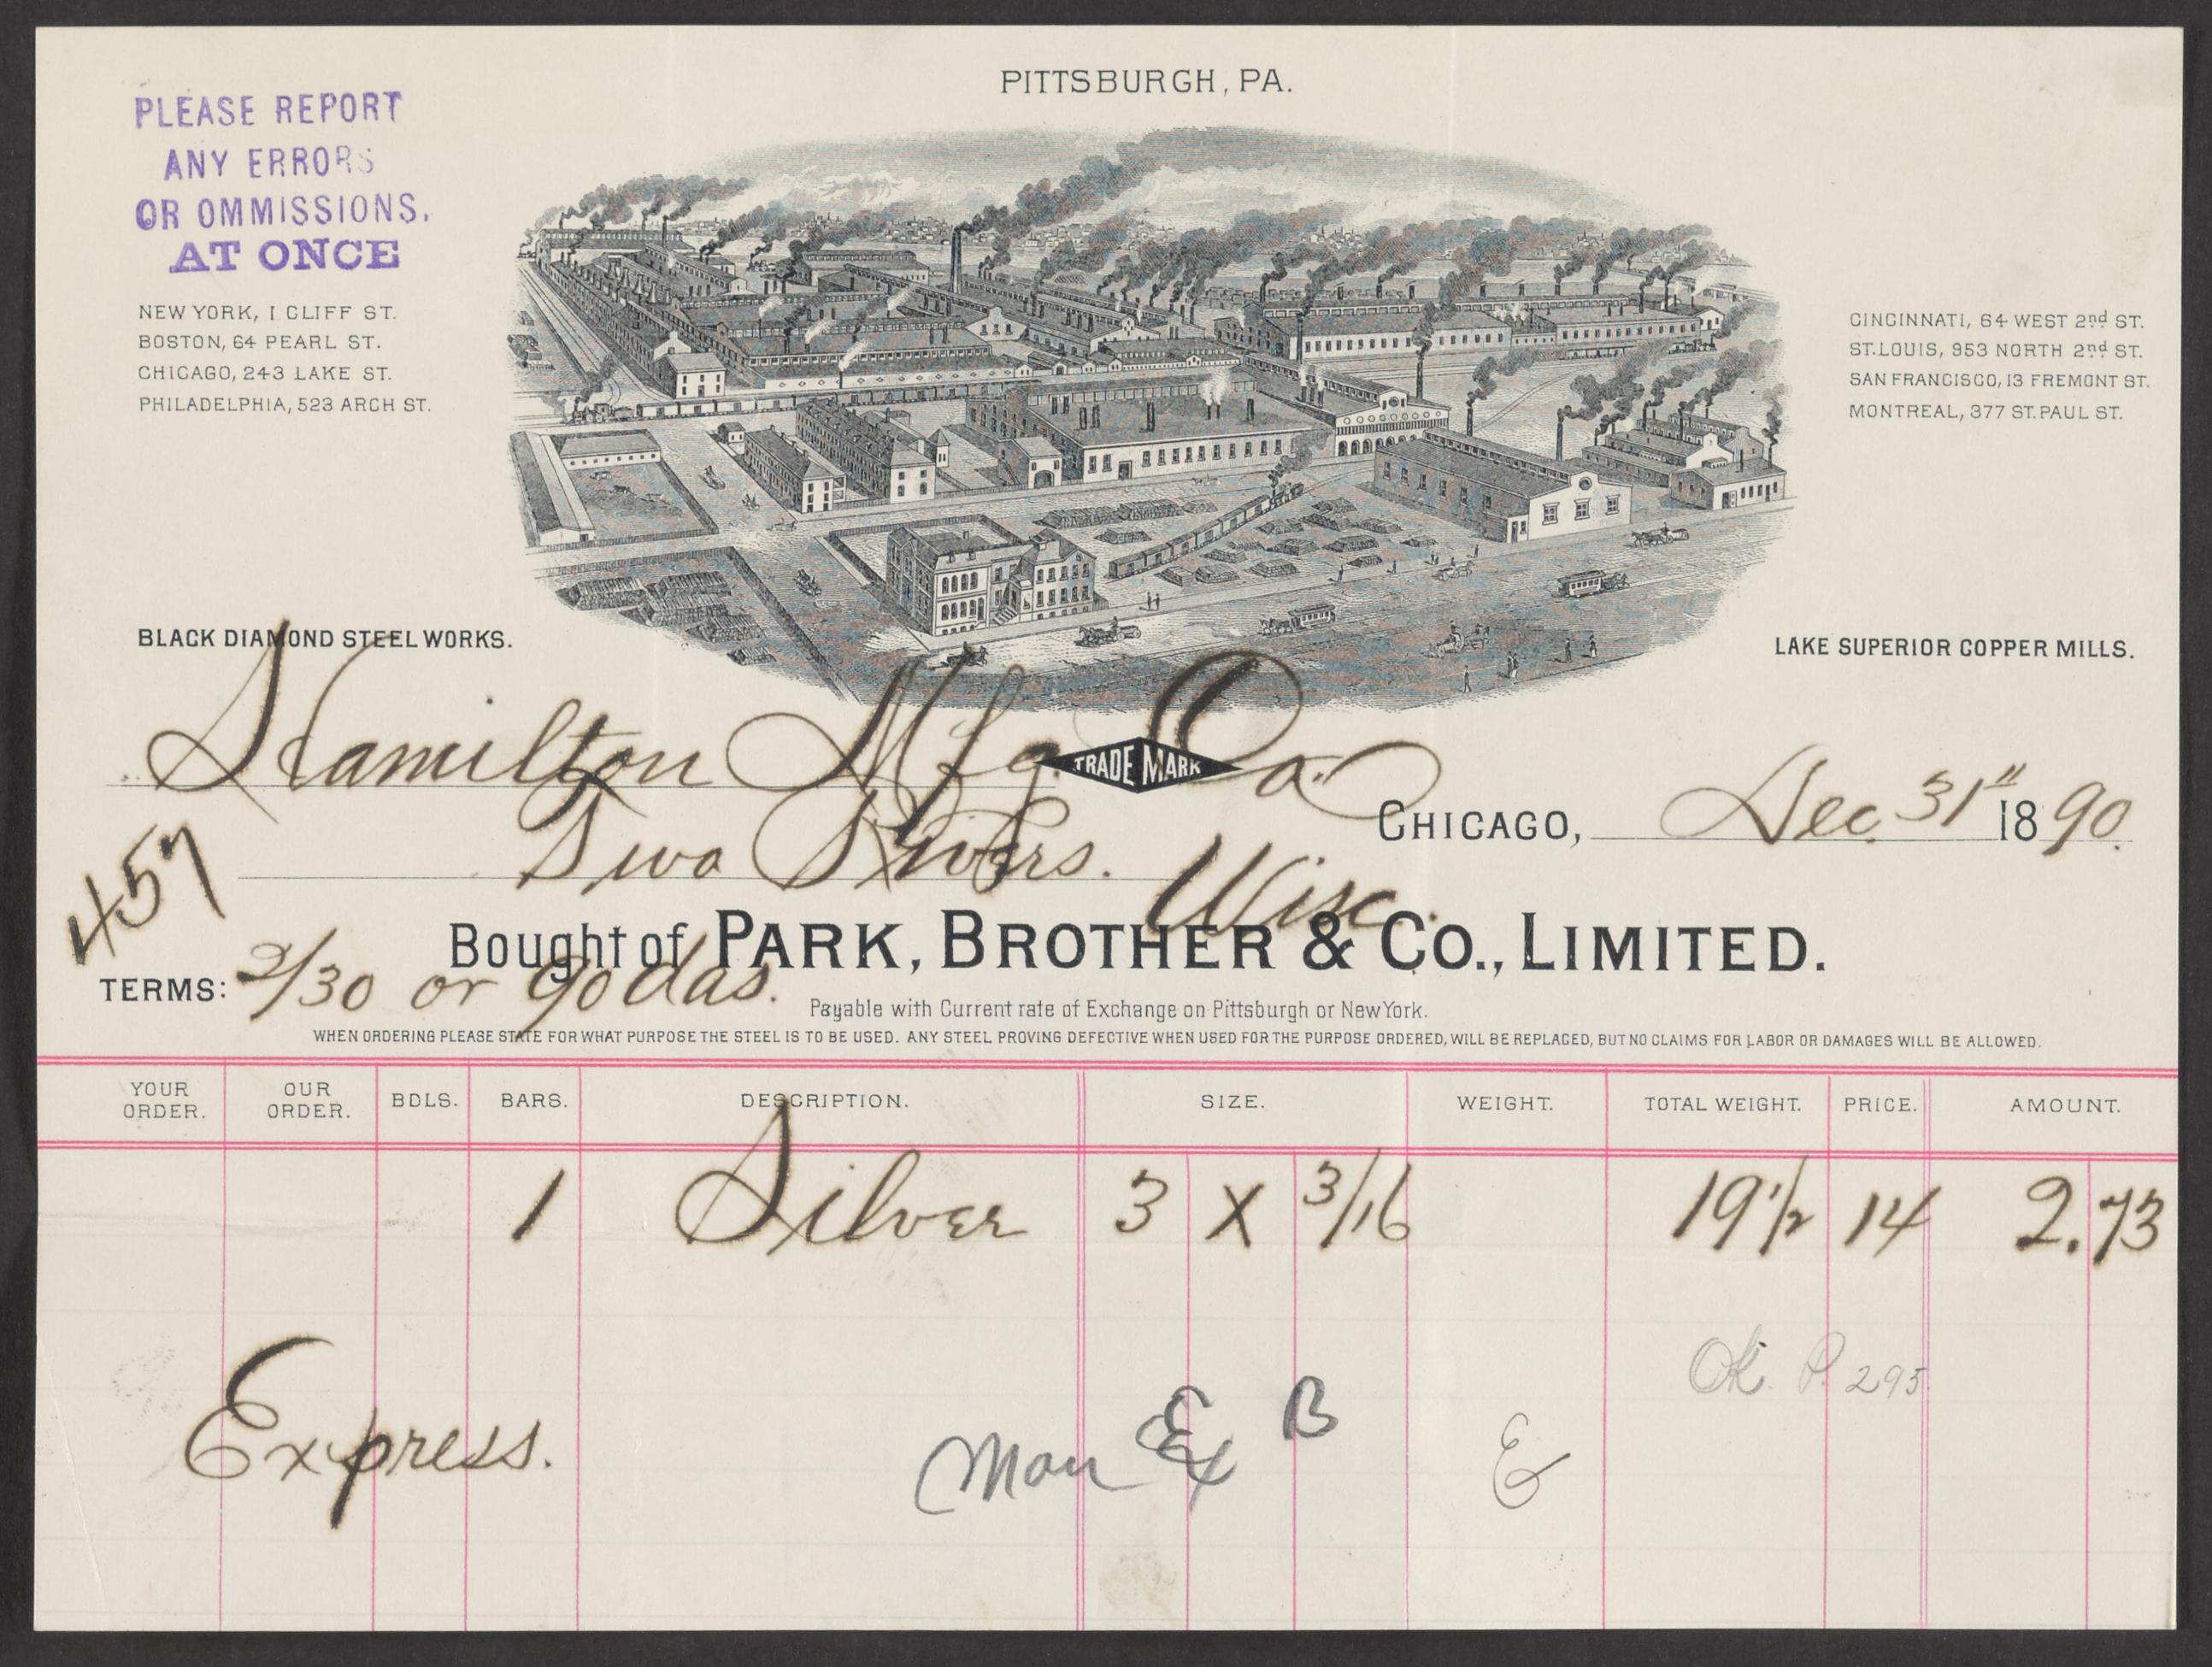 PITTSBURGH, PA.
PLEASE REPORT
ANY ERRORS
OR OMMISSIONS.
AT ONCE
NEW YORK, 1 CLIFF ST.
BOSTON, 64 PEARL ST.
CHICAGO, 243 LAKE ST.
PHILADELPHIA, 523 ARCH ST.
CINCINNATI, 64 WEST 2nd ST.
ST. LOUIS, 953 NORTH 2nd ST.
SAN FRANCISCO, 13 FREMONT ST.
MONTREAL, 377 ST. PAUL ST.
BLACK DIAMOND STEEL WORKS.
LAKE SUPERIOR COPPER MILLS.
Hamilton Mfg. Co.
TRADE MARK
CHICAGO, Dec. 31" 1890.
Two Rivers. Wisc.
457
Bought of PARK, BROTHER & CO., LIMITED.
TERMS: 2/30 or 90 das.
Payable with Current rate of Exchange on Pittsburgh or New York.
WHEN ORDERING PLEASE STATE FOR WHAT PURPOSE THE STEEL IS TO BE USED. ANY STEEL PROVING DEFECTIVE WHEN USED FOR THE PURPOSE ORDERED, WILL BE REPLACED, BUT NO CLAIMS FOR LABOR OR DAMAGES WILL BE ALLOWED.
YOUR ORDER. OUR ORDER. BDLS. BARS. DESCRIPTION. SIZE. WEIGHT. TOTAL WEIGHT. PRICE. AMOUNT.
1 Silver 3 X 3/16 19 1/2 14 2.73
Ok. P. 295
Express.
Ex B
E